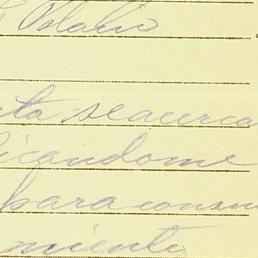 Polaco
ta se acerca
icandome
para consu
miento